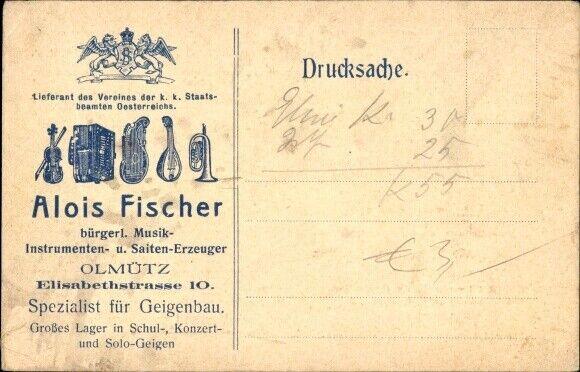 Lieferant des Vereines der k. k. Staats-
beamten Oesterreichs.
Alois Fischer
bürgerl. Musik-
Instrumenten- u. Saiten-Erzeuger
OLMÜTZ
Elisabethstrasse 10.
Spezialist für Geigenbau.
Großes Lager in Schul-, Konzert-
und Solo-Geigen
Drucksache.
K 30
25
K 55